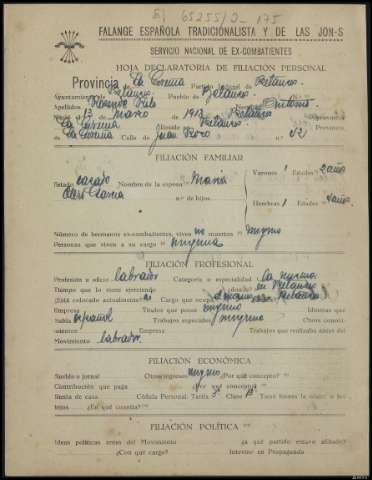 65255/2-175
FALANGE ESPAÑOLA TRADICIONALISTA Y DE LAS JON-S
SERVICIO NACIONAL DE EX-COMBATIENTES
HOJA DECLARATORIA DE FILIACIÓN PERSONAL
Provincia de La Coruña Partido judicial de Betanzos
Ayuntamiento de Betanzos Pueblo de Betanzos
Apellidos Antonio
Nació el 13 Marzo de 1913 Betanzos
La Coruña Betanzos Provincia
La Coruña Calle de n.º 52
FILIACIÓN FAMILIAR
Estado casado Nombre de la esposa María Varones 1 Edades 2 años
n.º de hijos.
Hembras 1 Edades 4 años
Número de hermanos ex-combatientes, vivos no muertos ninguno
Personas que viven a su cargo ninguna
FILIACIÓN PROFESIONAL
Profesión u oficio labrador Categoría o especialidad la misma
Tiempo que lo viene ejerciendo ¿dónde? en Betanzos
¿Está colocado actualmente? Cargo que ocupa Betanzos
Empresa Títulos que posee ninguno Idiomas que
habla español Trabajos especiales ninguno Otros conoci-
mientos Empresa Trabajos que realizaba antes del
Movimiento labrador.
FILIACIÓN ECONÓMICA
Sueldo o jornal Otros ingresos ninguno ¿Por qué concepto?
Contribución que paga ¿Por qué concepto?
Renta de casa Cédula Personal. Tarifa Clase Tiene tierras la
¿En qué cuantía?
FILIACIÓN POLÍTICA
Ideas políticas antes del Movimiento ¿a qué partido estuvo afiliado?
¿Con qué cargo? Intervino en Propaganda